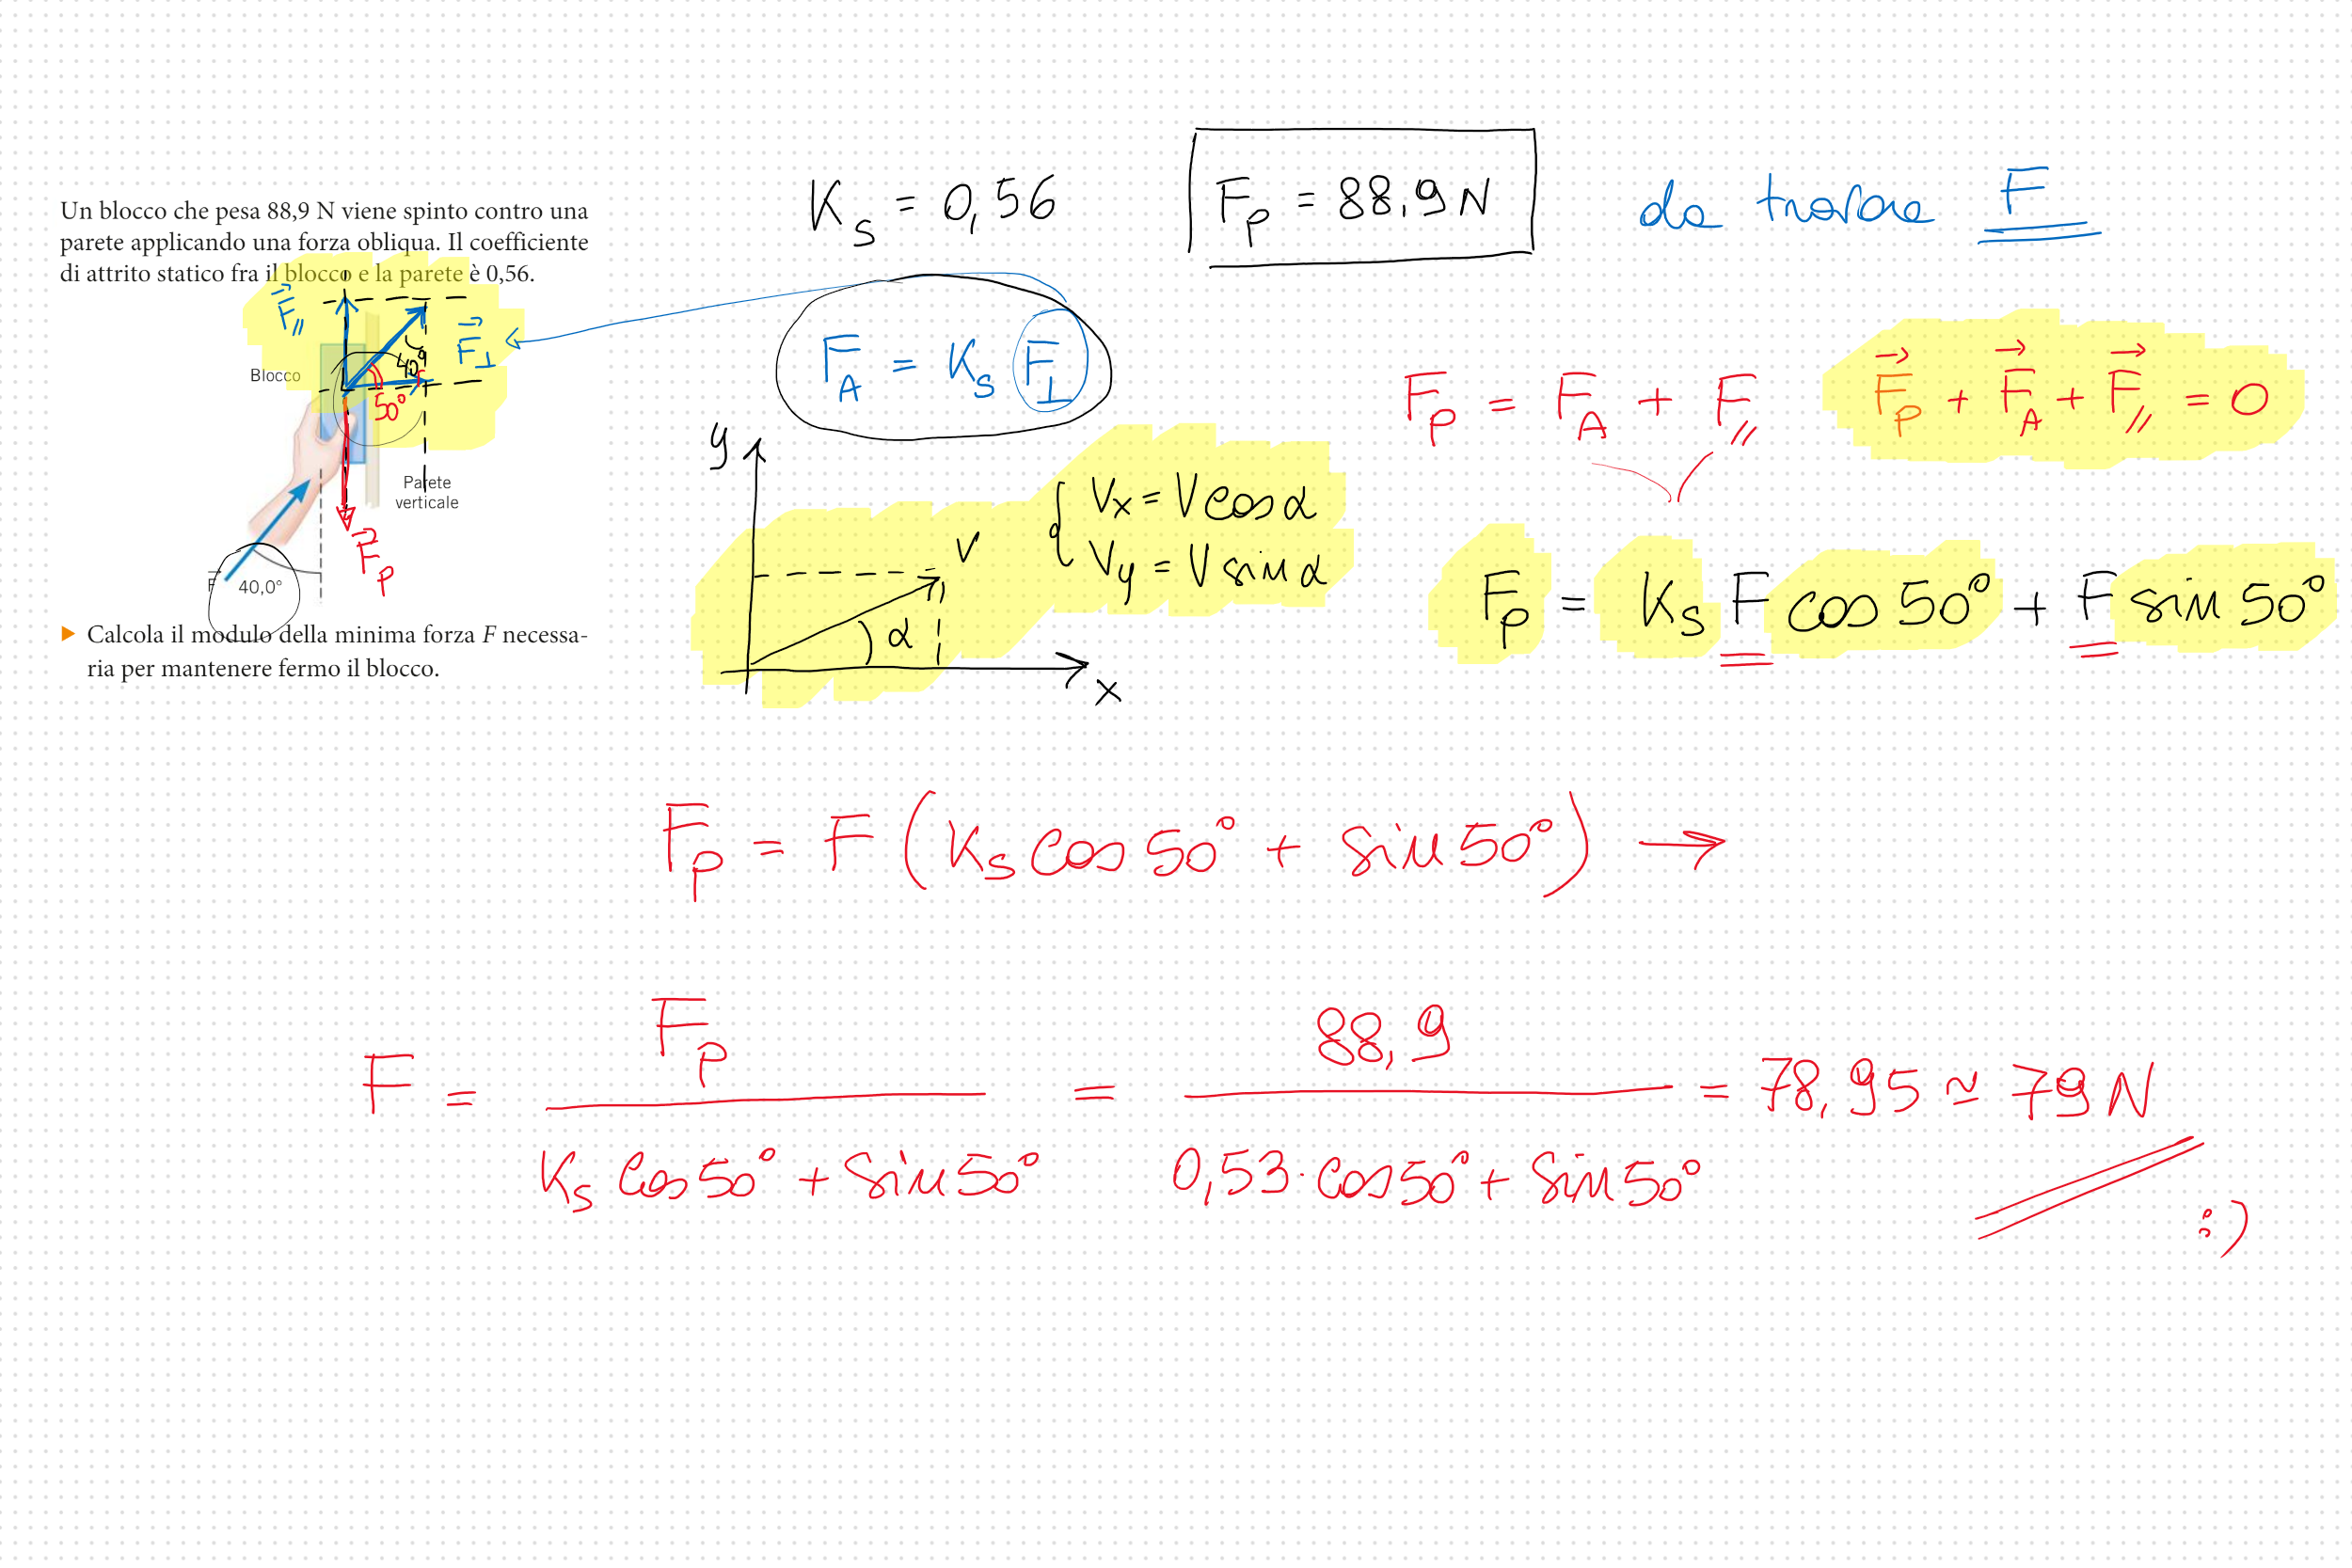 Un blocco che pesa 88,9 N viene spinto contro una
parete applicando una forza obliqua. Il coefficiente
di attrito statico fra il blocco e la parete è 0,56.
F⃗//
F⃗⊥
40°
Blocco
50°
Parete
verticale
F⃗p
F⃗ 40,0°
▶ Calcola il modulo della minima forza F necessa-
ria per mantenere fermo il blocco.
Ks = 0,56
Fp = 88,9 N
da trovare F
FA = Ks F⊥
Fp = FA + F//
F⃗p + F⃗A + F⃗// = 0
y
Vx = V cos α
Vy = V sin α
V
α
x
Fp = Ks F cos 50° + F sin 50°
Fp = F (Ks cos 50° + sin 50°) →
F = Fp / (Ks cos 50° + sin 50°) = 88,9 / (0,53 · cos 50° + sin 50°) = 78,95 ≃ 79 N
:)